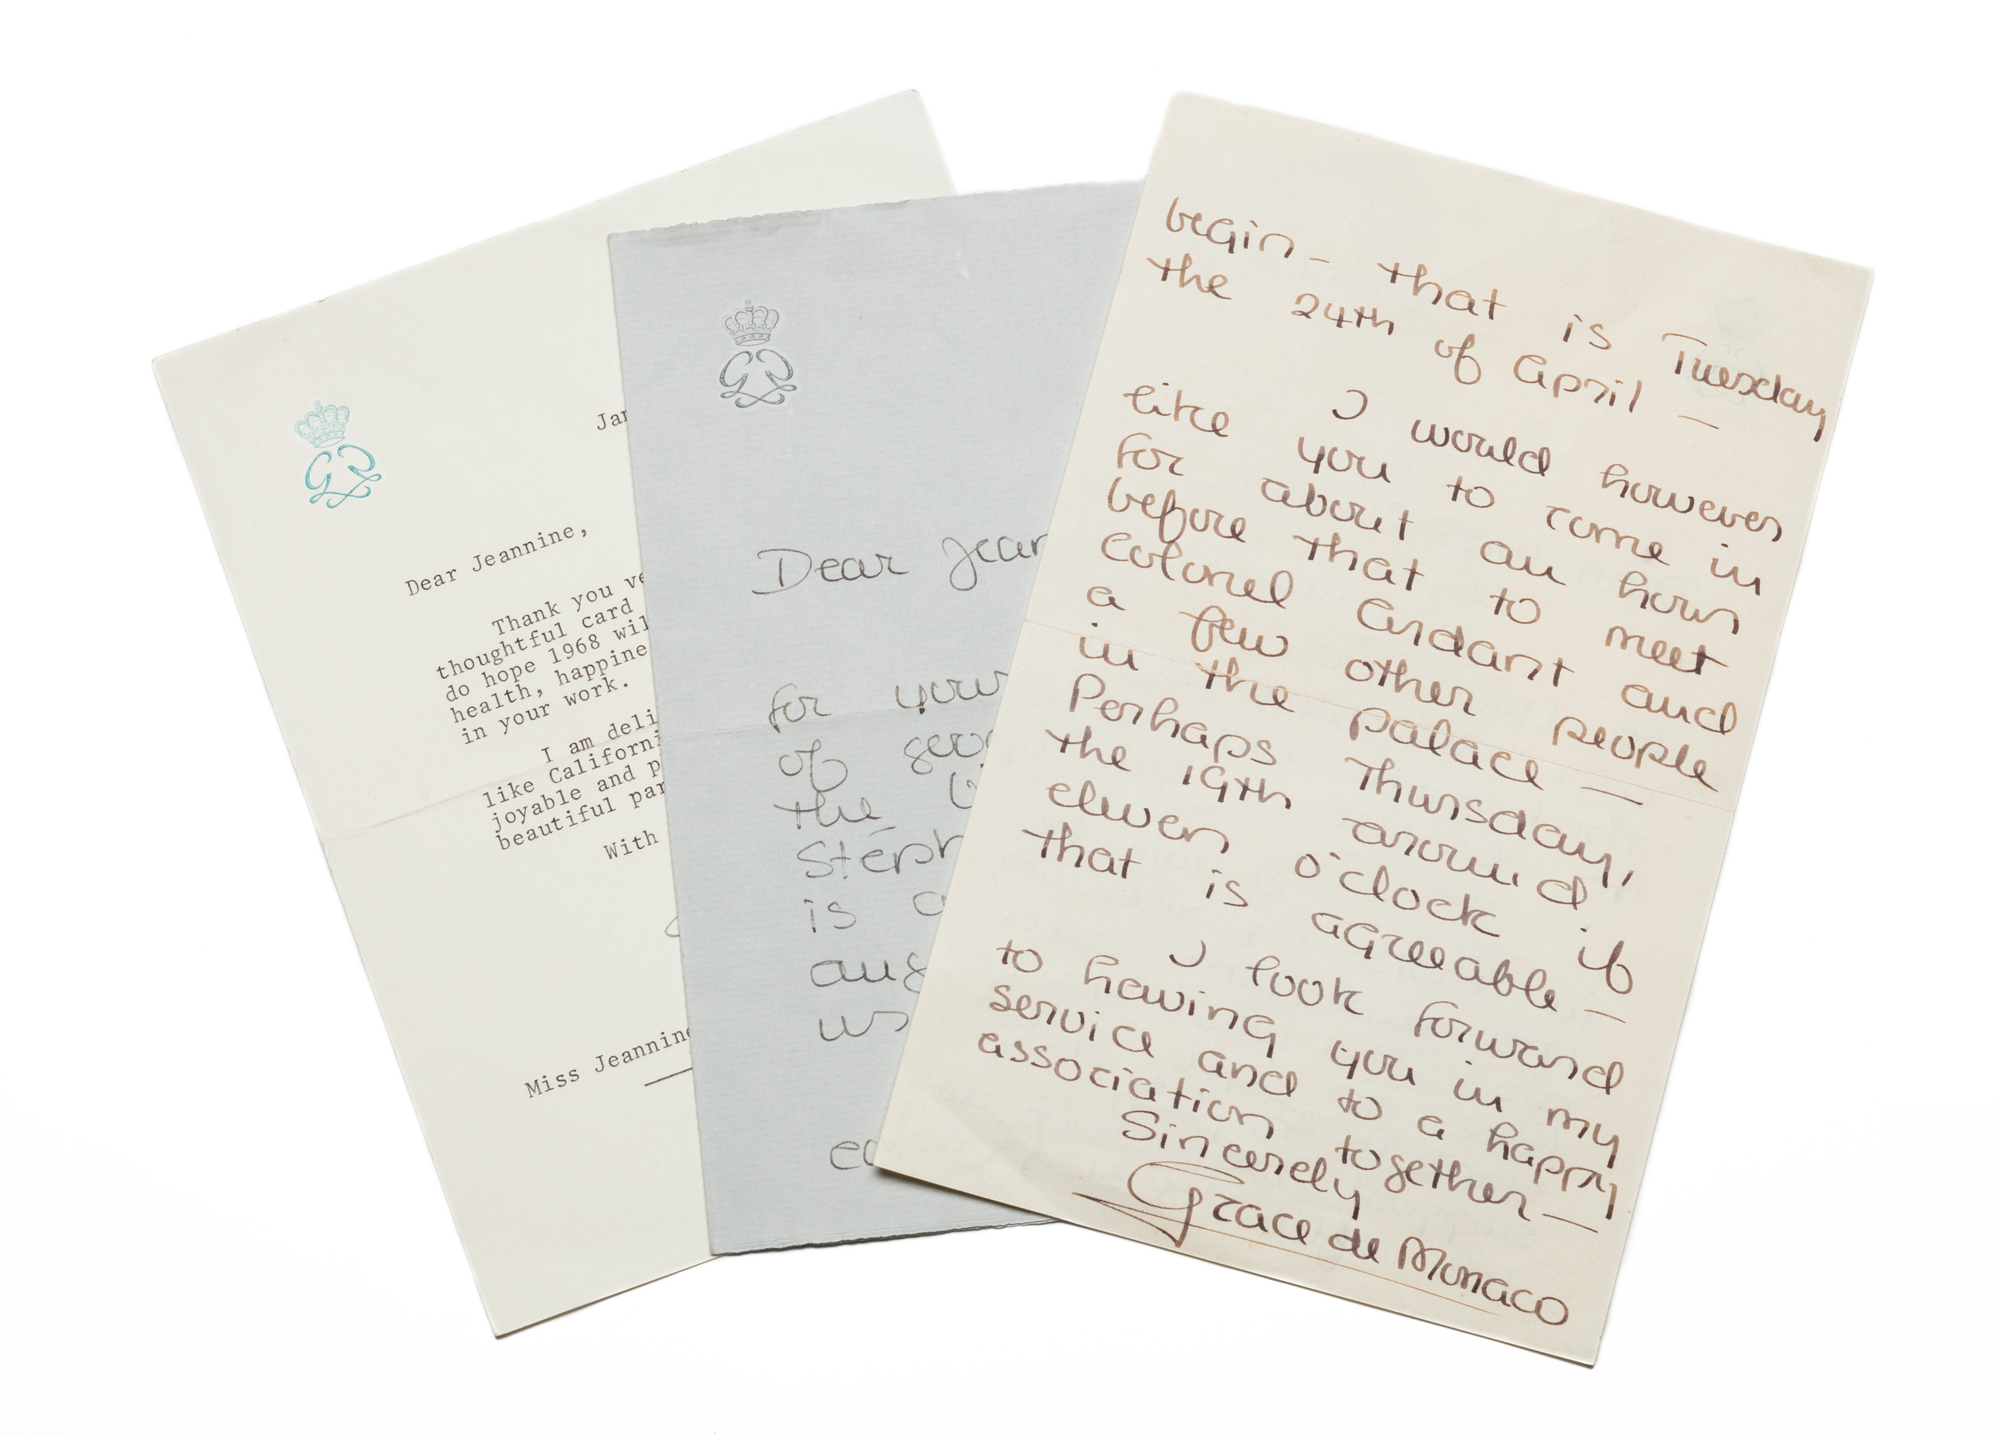 Dear Jeannine,
Thank you
thoughtful card
do hope 1968
health,
in your work.
I am
like
joyable and
beautiful
With
Miss Jeannine
Dear
for your
of
the
is
us
begin - that is Tuesday
the 24th of April -
I would however
like you to come in
for about an hour
before that to meet
Colonel Ardant and
a few other people
in the palace -
Perhaps Thursday,
the 19th around
eleven o'clock if
that is agreeable -
I look forward
to having you in my
service and to a happy
association together -
Sincerely
Grace de Monaco